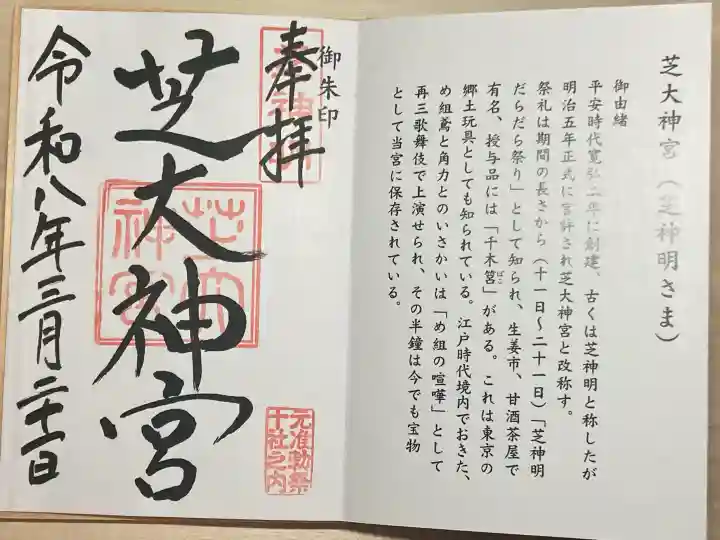 芝大神宮（芝神明さま）
御由緒
平安時代寛弘二年に創建、古くは芝神明と称したが
明治五年正式に官許され芝大神宮と改称す。
祭礼は期間の長さから（十一日～二十一日）「芝神明
だらだら祭り」として知られ、生姜市、甘酒茶屋で
有名、授与品には「千木筥」がある。これは東京の
ばこ
郷土玩具としても知られている。江戸時代境内でおきた、
め組鳶と角力とのいさかいは「め組の喧嘩」として
再三歌舞伎で上演せられ、その半鐘は今でも宝物
として当宮に保存されている。
御朱印
奉拝
芝大神宮
芝大
神宮
元准勅祭
十社之内
令和八年三月二十一日